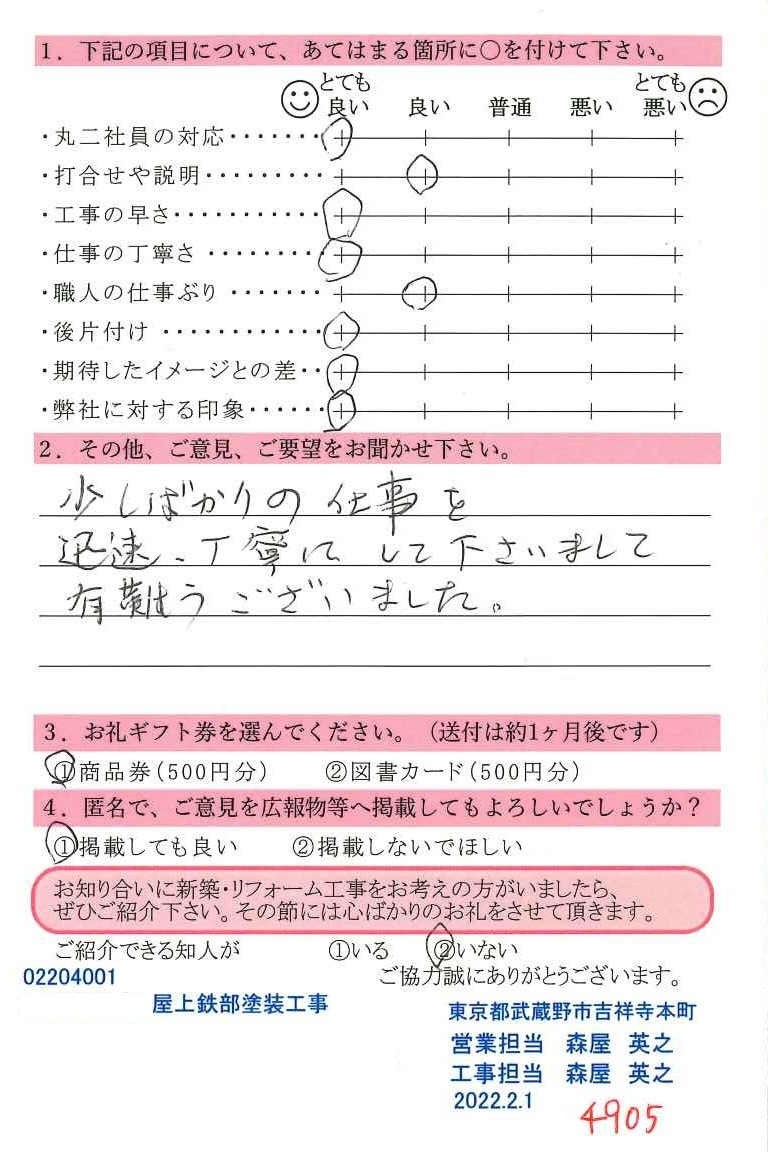 1. 下記の項目について、あてはまる箇所に○を付けて下さい。
とても良い 良い 普通 悪い とても悪い
・丸二社員の対応・・・・・・・
・打合せや説明・・・・・・・・・
・工事の早さ・・・・・・・・・・・
・仕事の丁寧さ・・・・・・・・
・職人の仕事ぶり・・・・・・・
・後片付け・・・・・・・・・・・・
・期待したイメージとの差・・
・弊社に対する印象・・・・・・
2. その他、ご意見、ご要望をお聞かせ下さい。
少しばかりの仕事を
迅速、丁寧にして下さいまして
有難うございました。
3. お礼ギフト券を選んでください。(送付は約1ヶ月後です)
①商品券(500円分) ②図書カード(500円分)
4. 匿名で、ご意見を広報物等へ掲載してもよろしいでしょうか?
①掲載しても良い ②掲載しないでほしい
お知り合いに新築・リフォーム工事をお考えの方がいましたら、
ぜひご紹介下さい。その節には心ばかりのお礼をさせて頂きます。
ご紹介できる知人が ①いる ②いない
ご協力誠にありがとうございます。
02204001
屋上鉄部塗装工事
東京都武蔵野市吉祥寺本町
営業担当 森屋 英之
工事担当 森屋 英之
2022.2.1
4905